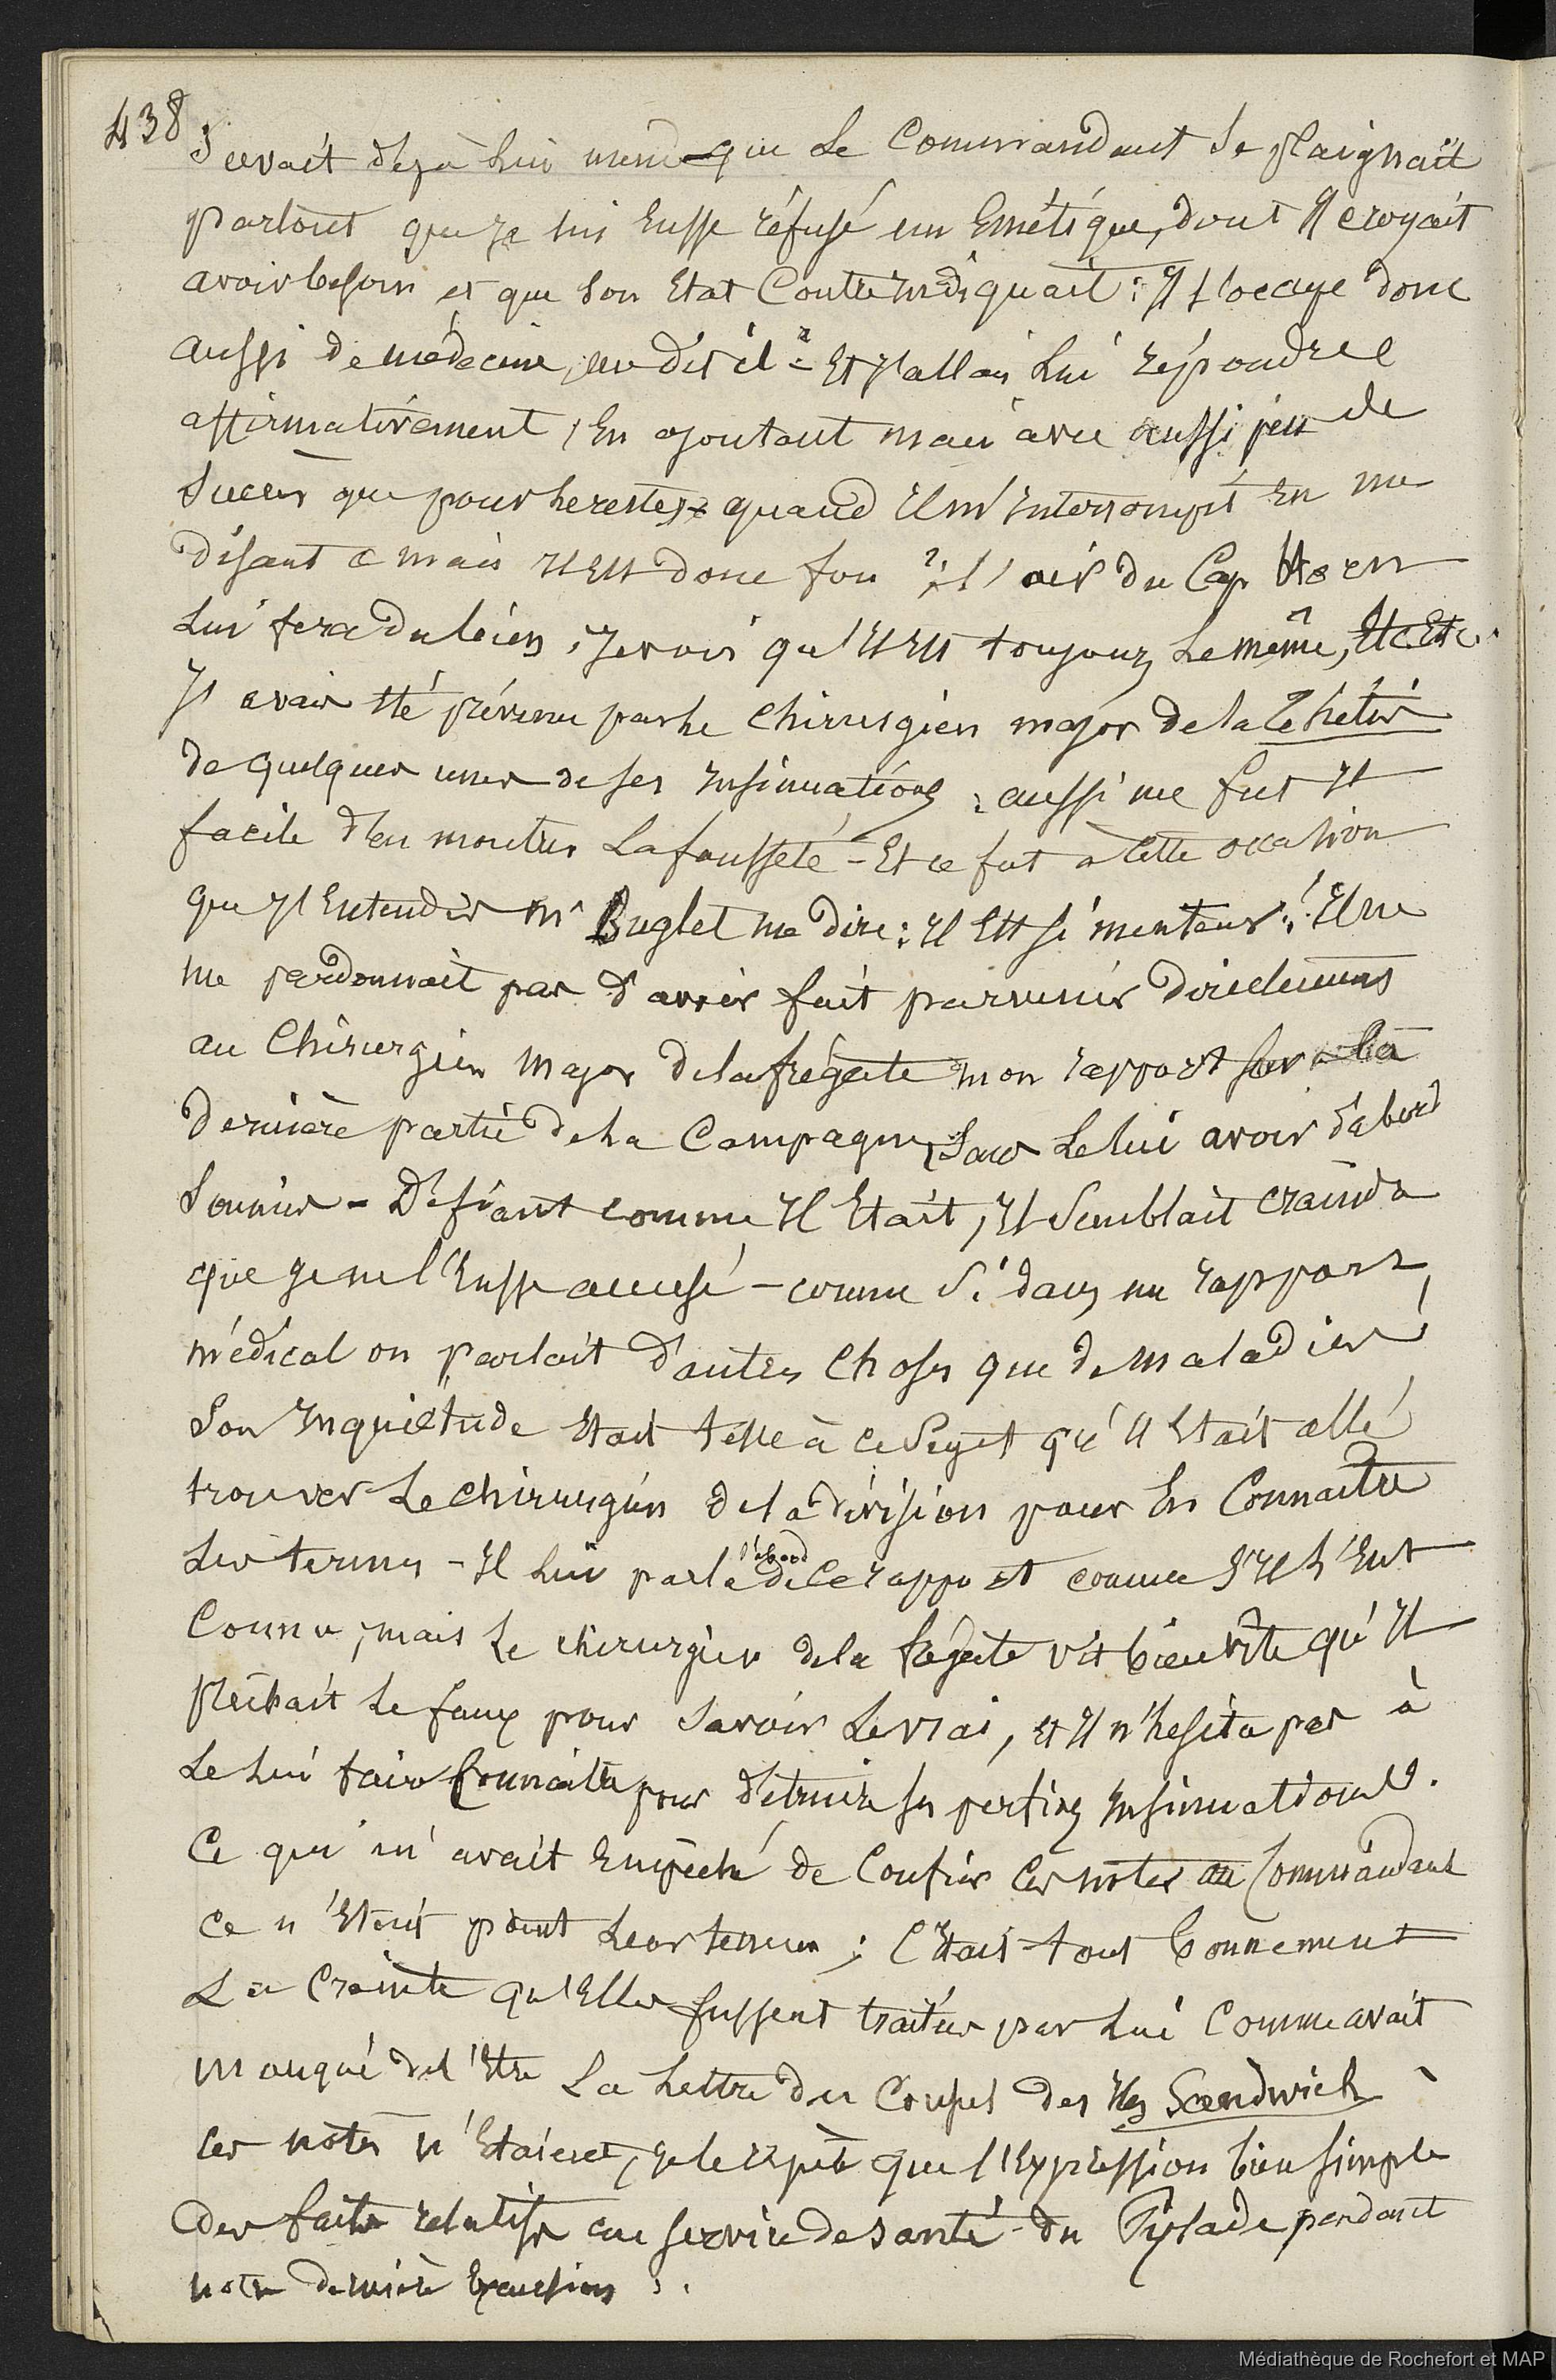 438
Savait déjà lui même que le Commandant se plaignait
partout que je lui eusse réfusé un Emétique, dont Il croyait
avoir besoin et que son Etat Contrindiquait : Il s'occupe donc
aussi de médecine, me dit il ? = Et J'allais lui répondre
affirmativement, En ajoutant mais avec aussi peu de
Succès que pour le reste, quand Il m'interrompit En me
disant « mais Il est donc fou ? l'air du Cap Horn
lui fera du bien, Je vois qu'Il est toujours le même, Etc Etc.
J'avais été prévenu par le Chirurgien major de la Thétis
de quelques unes de ses insinuations : aussi me fut Il
facile d'en montrer la fausseté - Et ce fut à cette occasion
que J'Entendis Mr Buglet me dire : Il est si menteur ! Il ne
me pardonnait pas d'avoir fait parvenir directement
au Chirurgien major de la frégate mon rapport sur la
dernière partie de la Campagne, sans le lui avoir d'abord
soumis - Défiant comme Il Etait, Il semblait craindre
que je ne l'Eusse accusé - comme si dans un rapport
médical on parlait d'autres choses que de maladies !
Son Inquiétude était telle à ce sujet qu'Il était allé
trouver le chirurgien de la division pour En Connaître
les termes - Il lui parla d'abord de ce rapport comme s'Il l'Eut
Connu, mais le chirurgien de la frégate vit bien vite qu'Il
plaidait le faux pour savoir le vrai, et Il n'hésita pas à
le lui faire Connaître pour détruire ses perfides insinuations.
Ce qui m'avait Empêché de Confier ces notes au Commandant
ce n'était point leur teneur ; C'était tout bonnement
La Crainte qu'Elles fussent traitées par lui Comme avait
manqué de l'Etre La lettre du Consul des Iles Sandwich
ces notes n'étaient, je le répète que l'Expression bien simple
des faits relatifs au service de santé du Pylade pendant
notre dernière Excursion .
Médiathèque de Rochefort et MAP